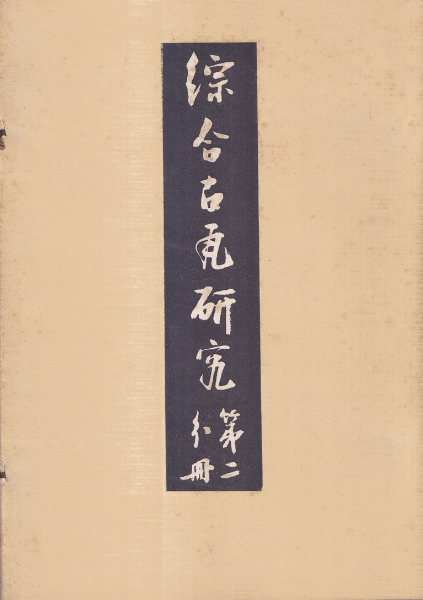 綜合古瓦研究
第二
分冊